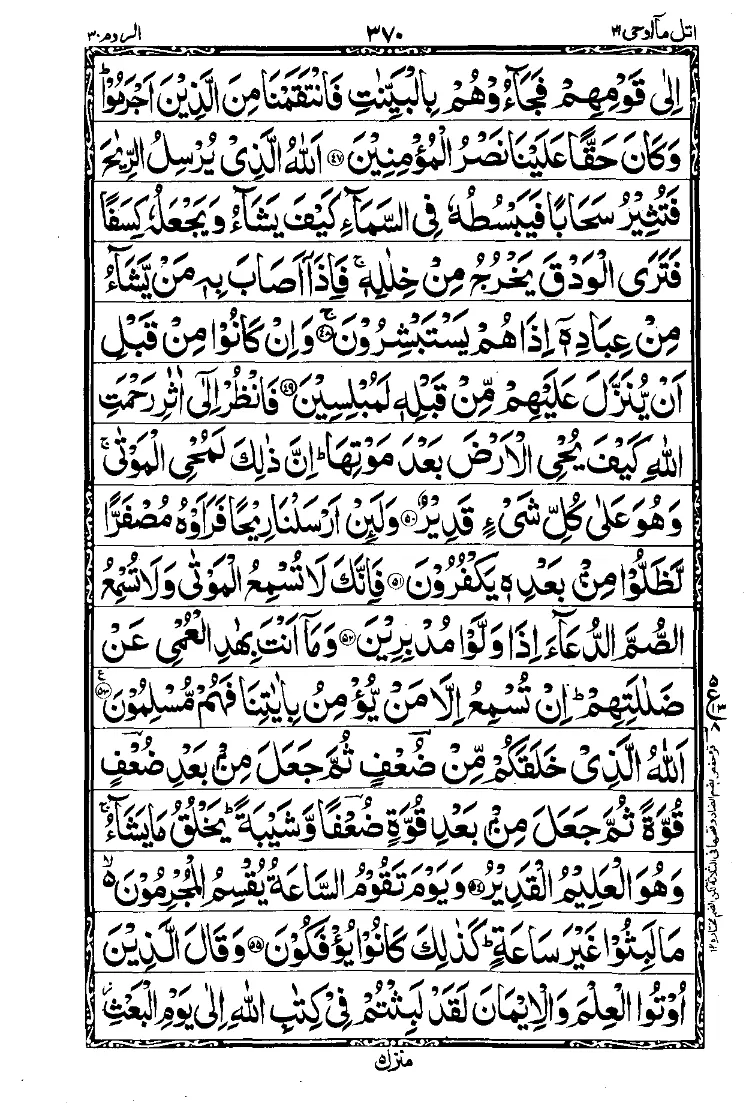 اتل مآ اوحی ۲۱ ۳۷۰ الروم ۳۰
اِلٰی قَوْمِهِمْ فَجَآءُوْهُمْ بِالْبَیِّنٰتِ فَانْتَقَمْنَا مِنَ الَّذِیْنَ اَجْرَمُوْا ؕ
وَكَانَ حَقًّا عَلَیْنَا نَصْرُ الْمُؤْمِنِیْنَ ﴿۴۷﴾ اَللّٰهُ الَّذِیْ یُرْسِلُ الرِّیٰحَ
فَتُثِیْرُ سَحَابًا فَیَبْسُطُهٗ فِی السَّمَآءِ كَیْفَ یَشَآءُ وَیَجْعَلُهٗ كِسَفًا
فَتَرَی الْوَدْقَ یَخْرُجُ مِنْ خِلٰلِهٖ ۚ فَاِذَاۤ اَصَابَ بِهٖ مَنْ یَّشَآءُ
مِنْ عِبَادِهٖۤ اِذَا هُمْ یَسْتَبْشِرُوْنَ ﴿۴۸﴾ۚ وَاِنْ كَانُوْا مِنْ قَبْلِ
اَنْ یُّنَزَّلَ عَلَیْهِمْ مِّنْ قَبْلِهٖ لَمُبْلِسِیْنَ ﴿۴۹﴾ فَانْظُرْ اِلٰۤی اٰثٰرِ رَحْمَتِ
اللّٰهِ كَیْفَ یُحْیِ الْاَرْضَ بَعْدَ مَوْتِهَا ؕ اِنَّ ذٰلِكَ لَمُحْیِ الْمَوْتٰی ۚ
وَهُوَ عَلٰی كُلِّ شَیْءٍ قَدِیْرٌ ﴿۵۰﴾ وَلَىِٕنْ اَرْسَلْنَا رِیْحًا فَرَاَوْهُ مُصْفَرًّا
لَّظَلُّوْا مِنْۢ بَعْدِهٖ یَكْفُرُوْنَ ﴿۵۱﴾ فَاِنَّكَ لَا تُسْمِعُ الْمَوْتٰی وَلَا تُسْمِعُ
الصُّمَّ الدُّعَآءَ اِذَا وَلَّوْا مُدْبِرِیْنَ ﴿۵۲﴾ وَمَاۤ اَنْتَ بِهٰدِ الْعُمْیِ عَنْ
ضَلٰلَتِهِمْ ؕ اِنْ تُسْمِعُ اِلَّا مَنْ یُّؤْمِنُ بِاٰیٰتِنَا فَهُمْ مُّسْلِمُوْنَ ﴿۵۳﴾
اَللّٰهُ الَّذِیْ خَلَقَكُمْ مِّنْ ضُؔعْفٍ ثُمَّ جَعَلَ مِنْۢ بَعْدِ ضُؔعْفٍ
قُوَّةً ثُمَّ جَعَلَ مِنْۢ بَعْدِ قُوَّةٍ ضُؔعْفًا وَّشَیْبَةً ؕ یَخْلُقُ مَا یَشَآءُ ۚ
وَهُوَ الْعَلِیْمُ الْقَدِیْرُ ﴿۵۴﴾ وَیَوْمَ تَقُوْمُ السَّاعَةُ یُقْسِمُ الْمُجْرِمُوْنَ ۙ۵
مَا لَبِثُوْا غَیْرَ سَاعَةٍ ؕ كَذٰلِكَ كَانُوْا یُؤْفَكُوْنَ ﴿۵۵﴾ وَقَالَ الَّذِیْنَ
اُوْتُوا الْعِلْمَ وَالْاِیْمَانَ لَقَدْ لَبِثْتُمْ فِیْ كِتٰبِ اللّٰهِ اِلٰی یَوْمِ الْبَعْثِ ؗ
منزل ۵